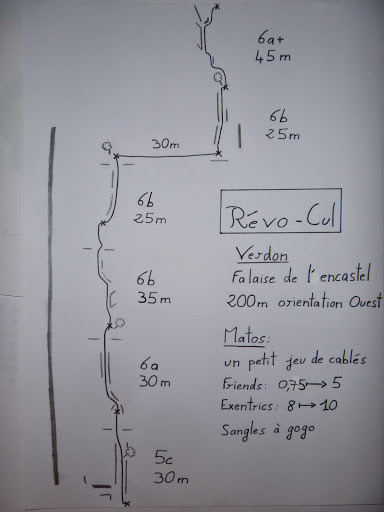 6a+
45m
6b
25m
30m
6b
25m
Révo-Cul
Verdon
Falaise de l'encastel
200m orientation Ouest
6b
35m
Matos:
un petit jeu de cablés
Friends: 0,75↦5
Exentrics: 8↦10
Sangles à gogo
6a
30m
5c
30m